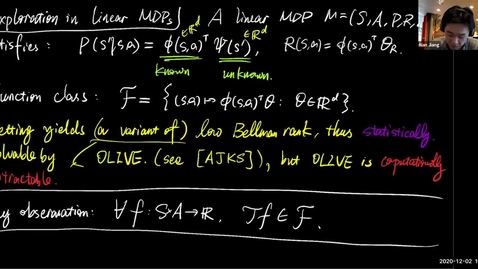 Exploration in Linear MDPs) A linear MDP M=(S,A,P,R,
atisfies: P(s'|s,a) = ϕ(s,a)ᵀ ψ(s'), R(s,a) = ϕ(s,a)ᵀ θ_R.
∈ℝᵈ ∈ℝᵈ
known unknown.
unction class: F = {(s,a) ↦ ϕ(s,a)ᵀθ : θ∈ℝᵈ}.
etting yields (a variant of) low Bellman rank, thus statistically
olvable by OLIVE. (see [AJKS]), but OLIVE is coputationally
tractable.
y observation: ∀ f: S×A→ℝ, 𝒯f ∈ F.
Nan Jiang
2020-12-02